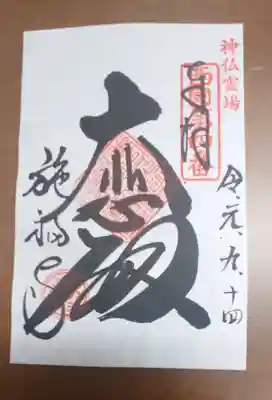 神仏霊場
令、元、九、十四
奉拝
大悲殿
施福寺